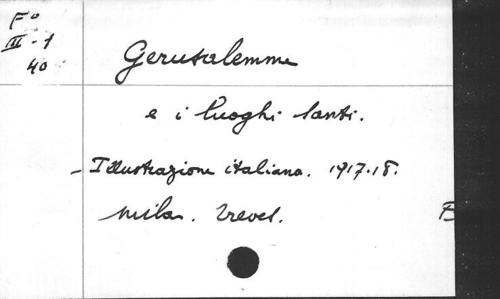 F°
III - 1
40
Gerusalemme
e i luoghi santi.
- Illustrazione italiana. 1917-18.
Mila. Treves.